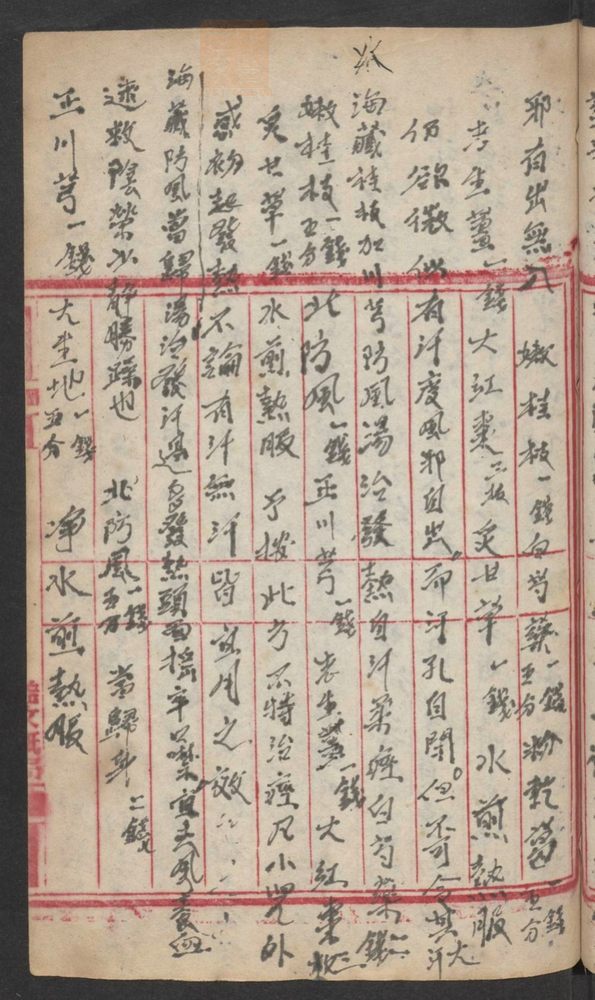 邪有出無入 嫩桂枝一錢 白芍藥一錢五分 粉乾葛一錢五分
老生薑一錢 大紅棗三枚 炙甘草一錢 水煎熱服
仍欲微似有汗度風邪自出。而汗孔自閉。但不可令其大汗
海藏桂枝加川芎防風湯治發熱自汗柔痙白芍藥錢二
嫩桂枝一錢五分 北防風一錢 正川芎一錢 老生薑一錢 大紅棗三枚
炙甘草一錢 水煎熱服 予按此方不特治痙凡小兒外
感初起發熱不論有汗無汗皆宜用之效
海藏防風當歸湯治發汗過多發熱頭面搖卒噤宜去風養血
速救陰榮以靜勝躁也 北防風一錢五分 當歸身二錢
正川芎一錢 大生地一錢五分 净水煎熱服